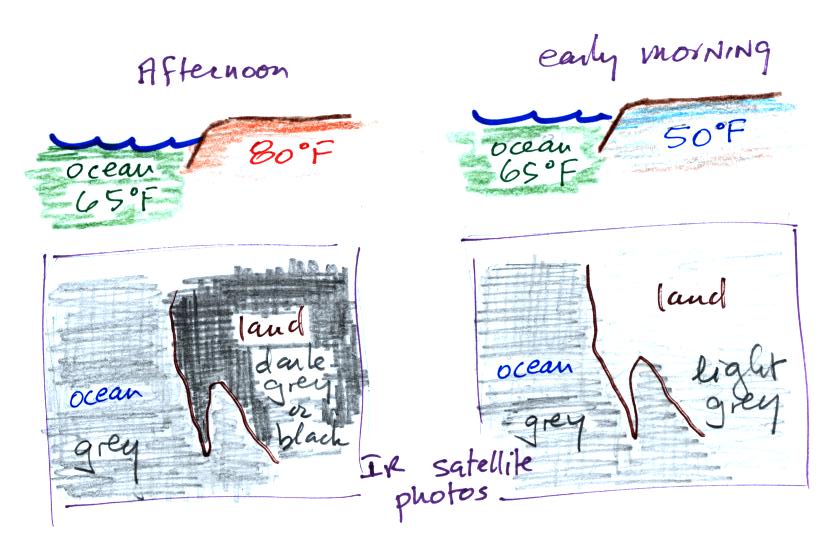 Afternoon
early morning
ocean
65°F
80°F
ocean
65°F
50°F
land
dark
grey
or
black
ocean
grey
land
ocean
light
grey
grey
IR satellite
photos